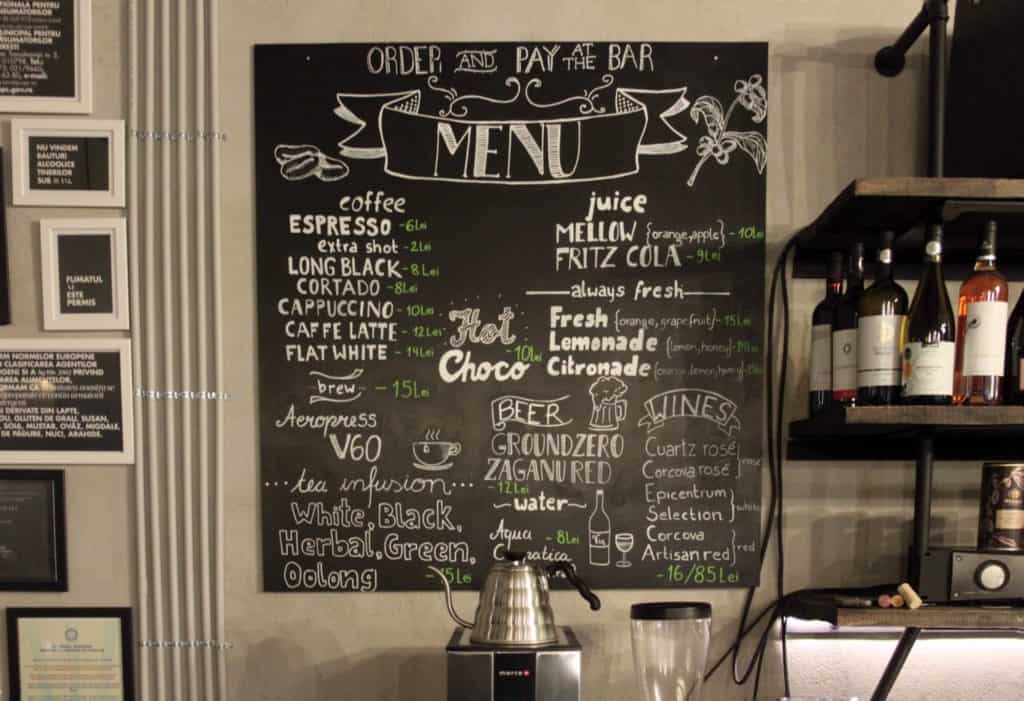 ORDER AND PAY AT THE BAR
MENU
coffee
ESPRESSO - 6Lei
extra shot - 2Lei
LONG BLACK - 8Lei
CORTADO - 8Lei
CAPPUCCINO - 10Lei
CAFFE LATTE - 12Lei
FLAT WHITE - 14Lei
brew - 15Lei
Aeropress
V60
tea infusion
White, Black,
Herbal, Green,
Oolong - 15Lei
Hot
Choco 10lei
juice
MELLOW {orange, apple} - 10lei
FRITZ COLA - 9Lei
always fresh
Fresh {orange, grapefruit} - 15Lei
Lemonade {lemon, honey}
Citronade {orange, lemon, honey}
BEER
GROUNDZERO
ZAGANU RED
- 12Lei
water
Aqua - 8Lei
WINES
Cuartz rosé
Corcova rosé } rose
Epicentrum
Selection } white
Corcova
Artisan red } red
- 16/85 Lei
NU VINDEM
BAUTURI
ALCOOLICE
TINERILOR
SUB
FUMATUL
ESTE
PERMIS
PENTRU
NORMELOR EUROPENE
CLASIFICAREA AGENTILOR
PRIVIND
DERIVATE DIN LAPTE,
GLUTEN DE GRAU, SUSAN,
SOIA, MUSTAR, OVĂZ, MIGDALE,
DE PĂDURE, NUCI, ARAHIDE.
marco